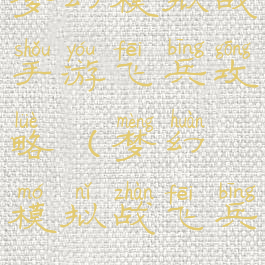 梦幻模拟战
shǒu yóu fēi bīng gōng
手游飞兵攻
lüè mèng huàn
略（梦幻
mó nǐ zhàn fēi bīng
模拟战飞兵